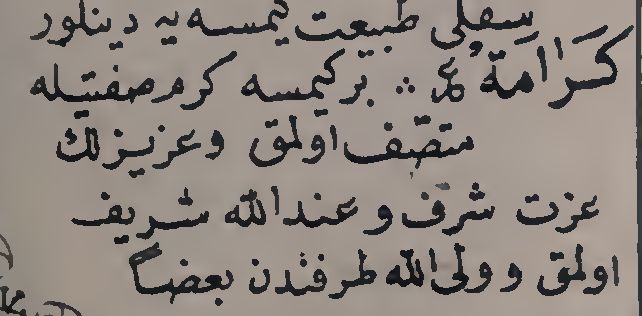 سفلی طبیعت كیمسه یه دینلور
كَرَامَةٌ ع ∴ بر كیمسه كرم صفتیله
متصّف اولمق و عزیزلك
عزت شرف و عندالله شریف
اولمق و ولیّ الله طرفندن بعضاً